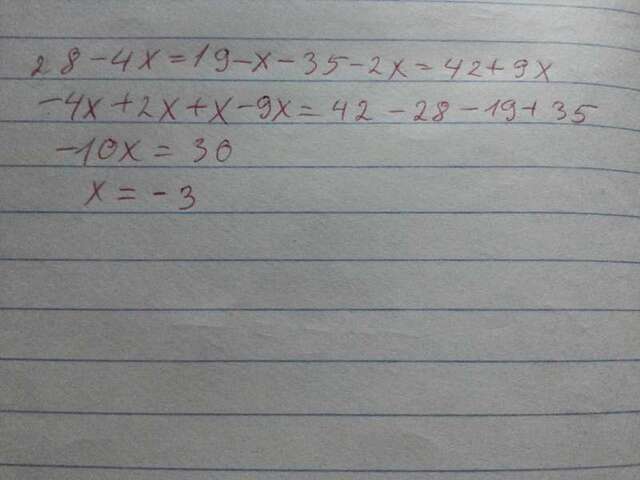 28-4x=19-x-35-2x=42+9x
-4x+2x+x-9x=42-28-19+35
-10x=30
x=-3